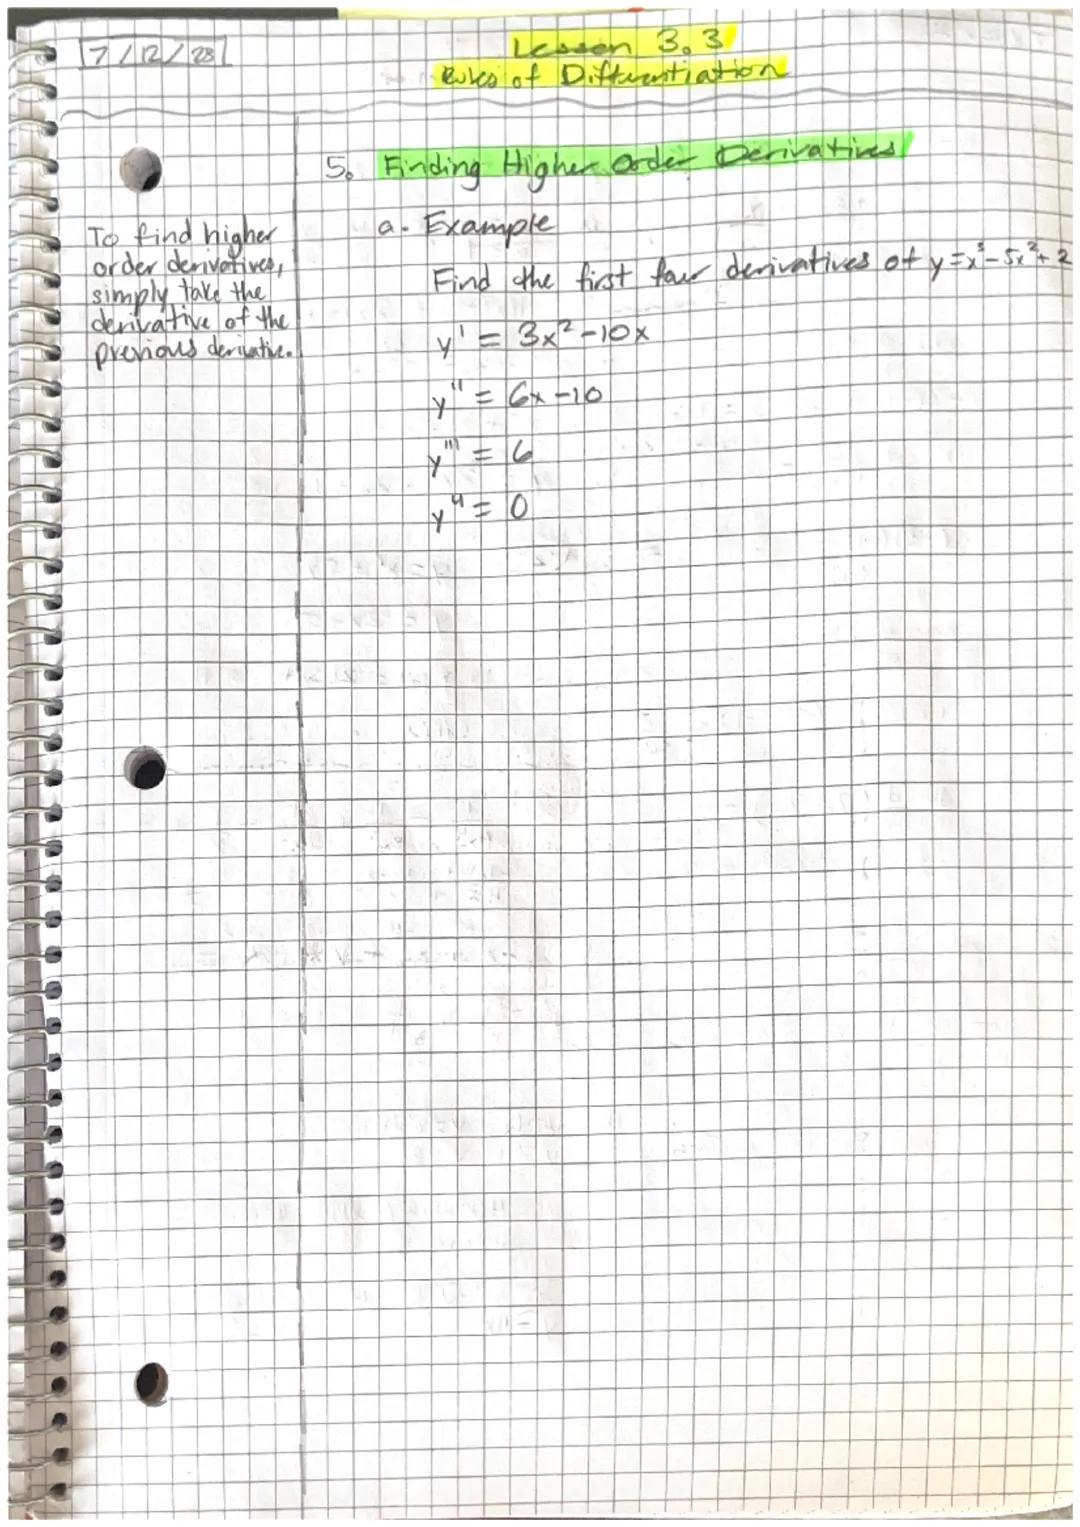 7/12/23
Lesson 3.3
Rules of Differentiation
5. Finding Higher Order Derivatives
To find higher
order derivatives,
simply take the
derivative of the
previous derivative.
a. Example
Find the first four derivatives of y=x³-5x²+2
y' = 3x²-10x
y'' = 6x-10
y''' = 6
y⁴ = 0